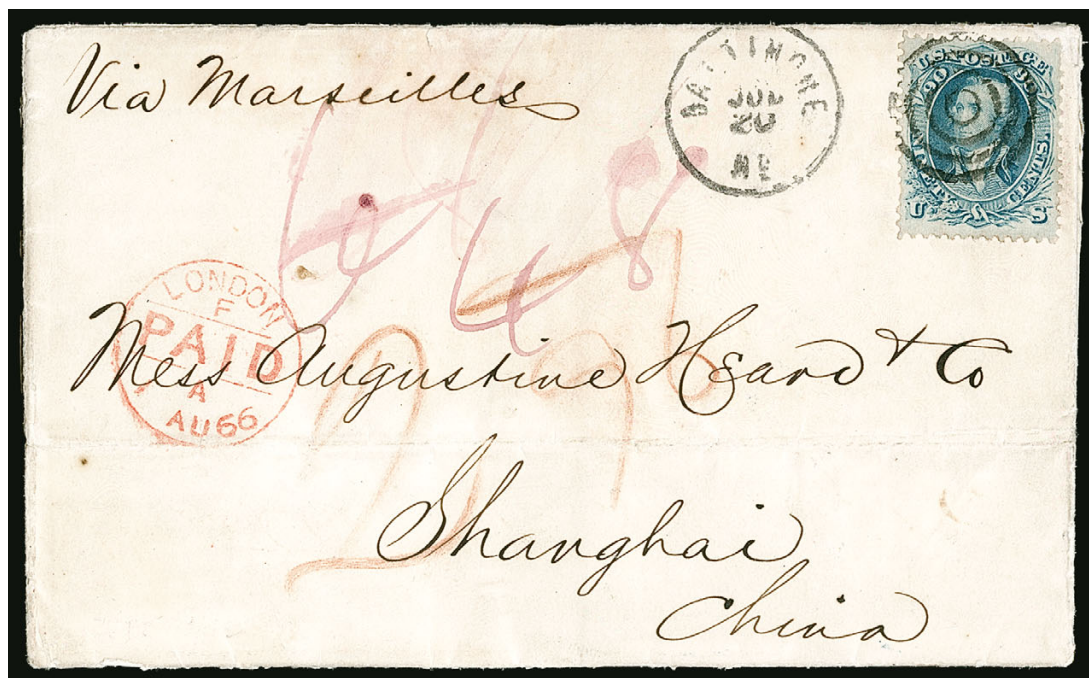 Via Marseilles
BALTIMORE
JUL
MD
U.S. POSTAGE
90 90
CENTS
U S
48
LONDON
F
PAID
A
AU 66
Mess Augustine Heard & Co
Shanghai
China